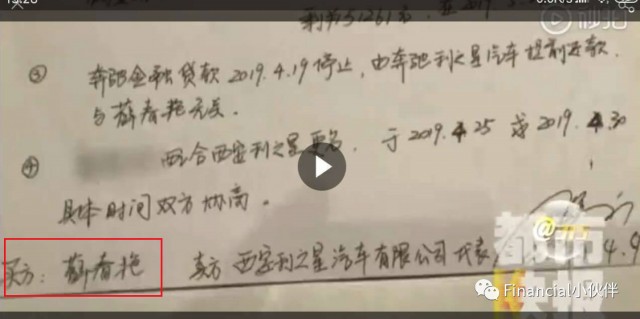 15:28
剩余31261元，在2019.
③ 奔驰金融贷款2019.4.19停止，由奔驰利之星汽车提前还款，
与薛春艳无关。
④ 配合西安利之星更名，于2019.4.25或2019.4.30
具体时间双方协商。
买方：薛春艳 卖方 西安利之星汽车有限公司 代表 4.9
都市
快报
Financial小伙伴